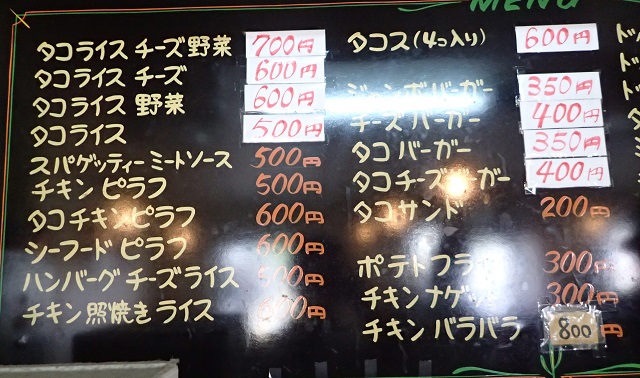 MENU
タコライス チーズ野菜 700円
タコライス チーズ 600円
タコライス 野菜 600円
タコライス 500円
スパゲッティー ミートソース 500円
チキン ピラフ 500円
タコ チキン ピラフ 600円
シーフード ピラフ 600円
ハンバーグ チーズライス 円
チキン 照焼き ライス 円
タコス(4コ入り) 600円
ジャンボバーガー 350円
チーズ バーガー 400円
タコ バーガー 350円
タコ チーズバーガー 400円
タコ サンド 200円
ポテトフライ 300円
チキン ナゲット 300円
チキン バラバラ 800円